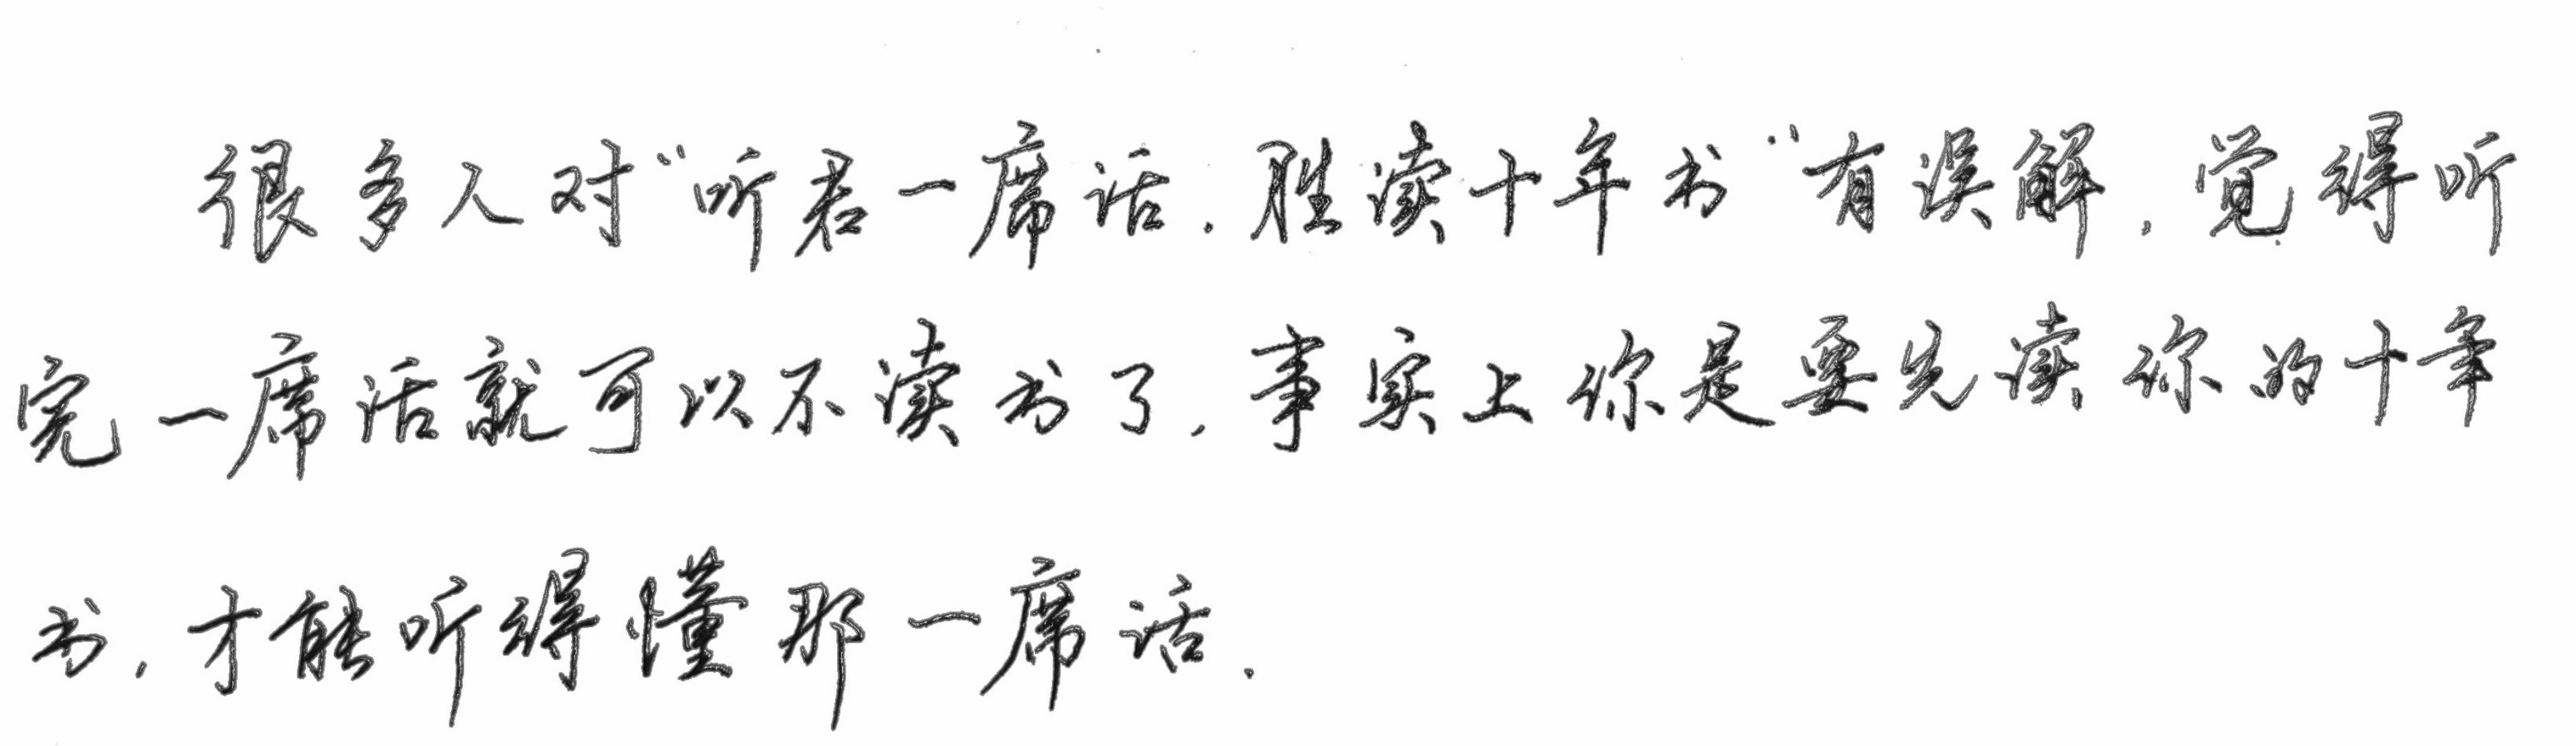 很多人对“听君一席话,胜读十年书”有误解,觉得听
完一席话就可以不读书了,事实上你是要先读你的十年
书,才能听得懂那一席话.